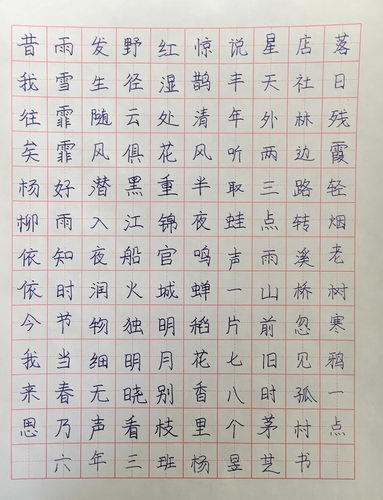 昔我往矣杨柳依依今我来思
雨雪霏霏好雨知时节当春乃
发生随风潜入夜润物细无声
野径云俱黑江船火独明晓看
红湿处花重锦官城明月别枝
惊鹊清风半夜鸣蝉稻花香里
说丰年听取蛙声一片七八个
星天外两三点雨山前旧时茅
店社林边路转溪桥忽见孤村
落日残霞轻烟老树寒鸦一点
六年三班杨昱芝书